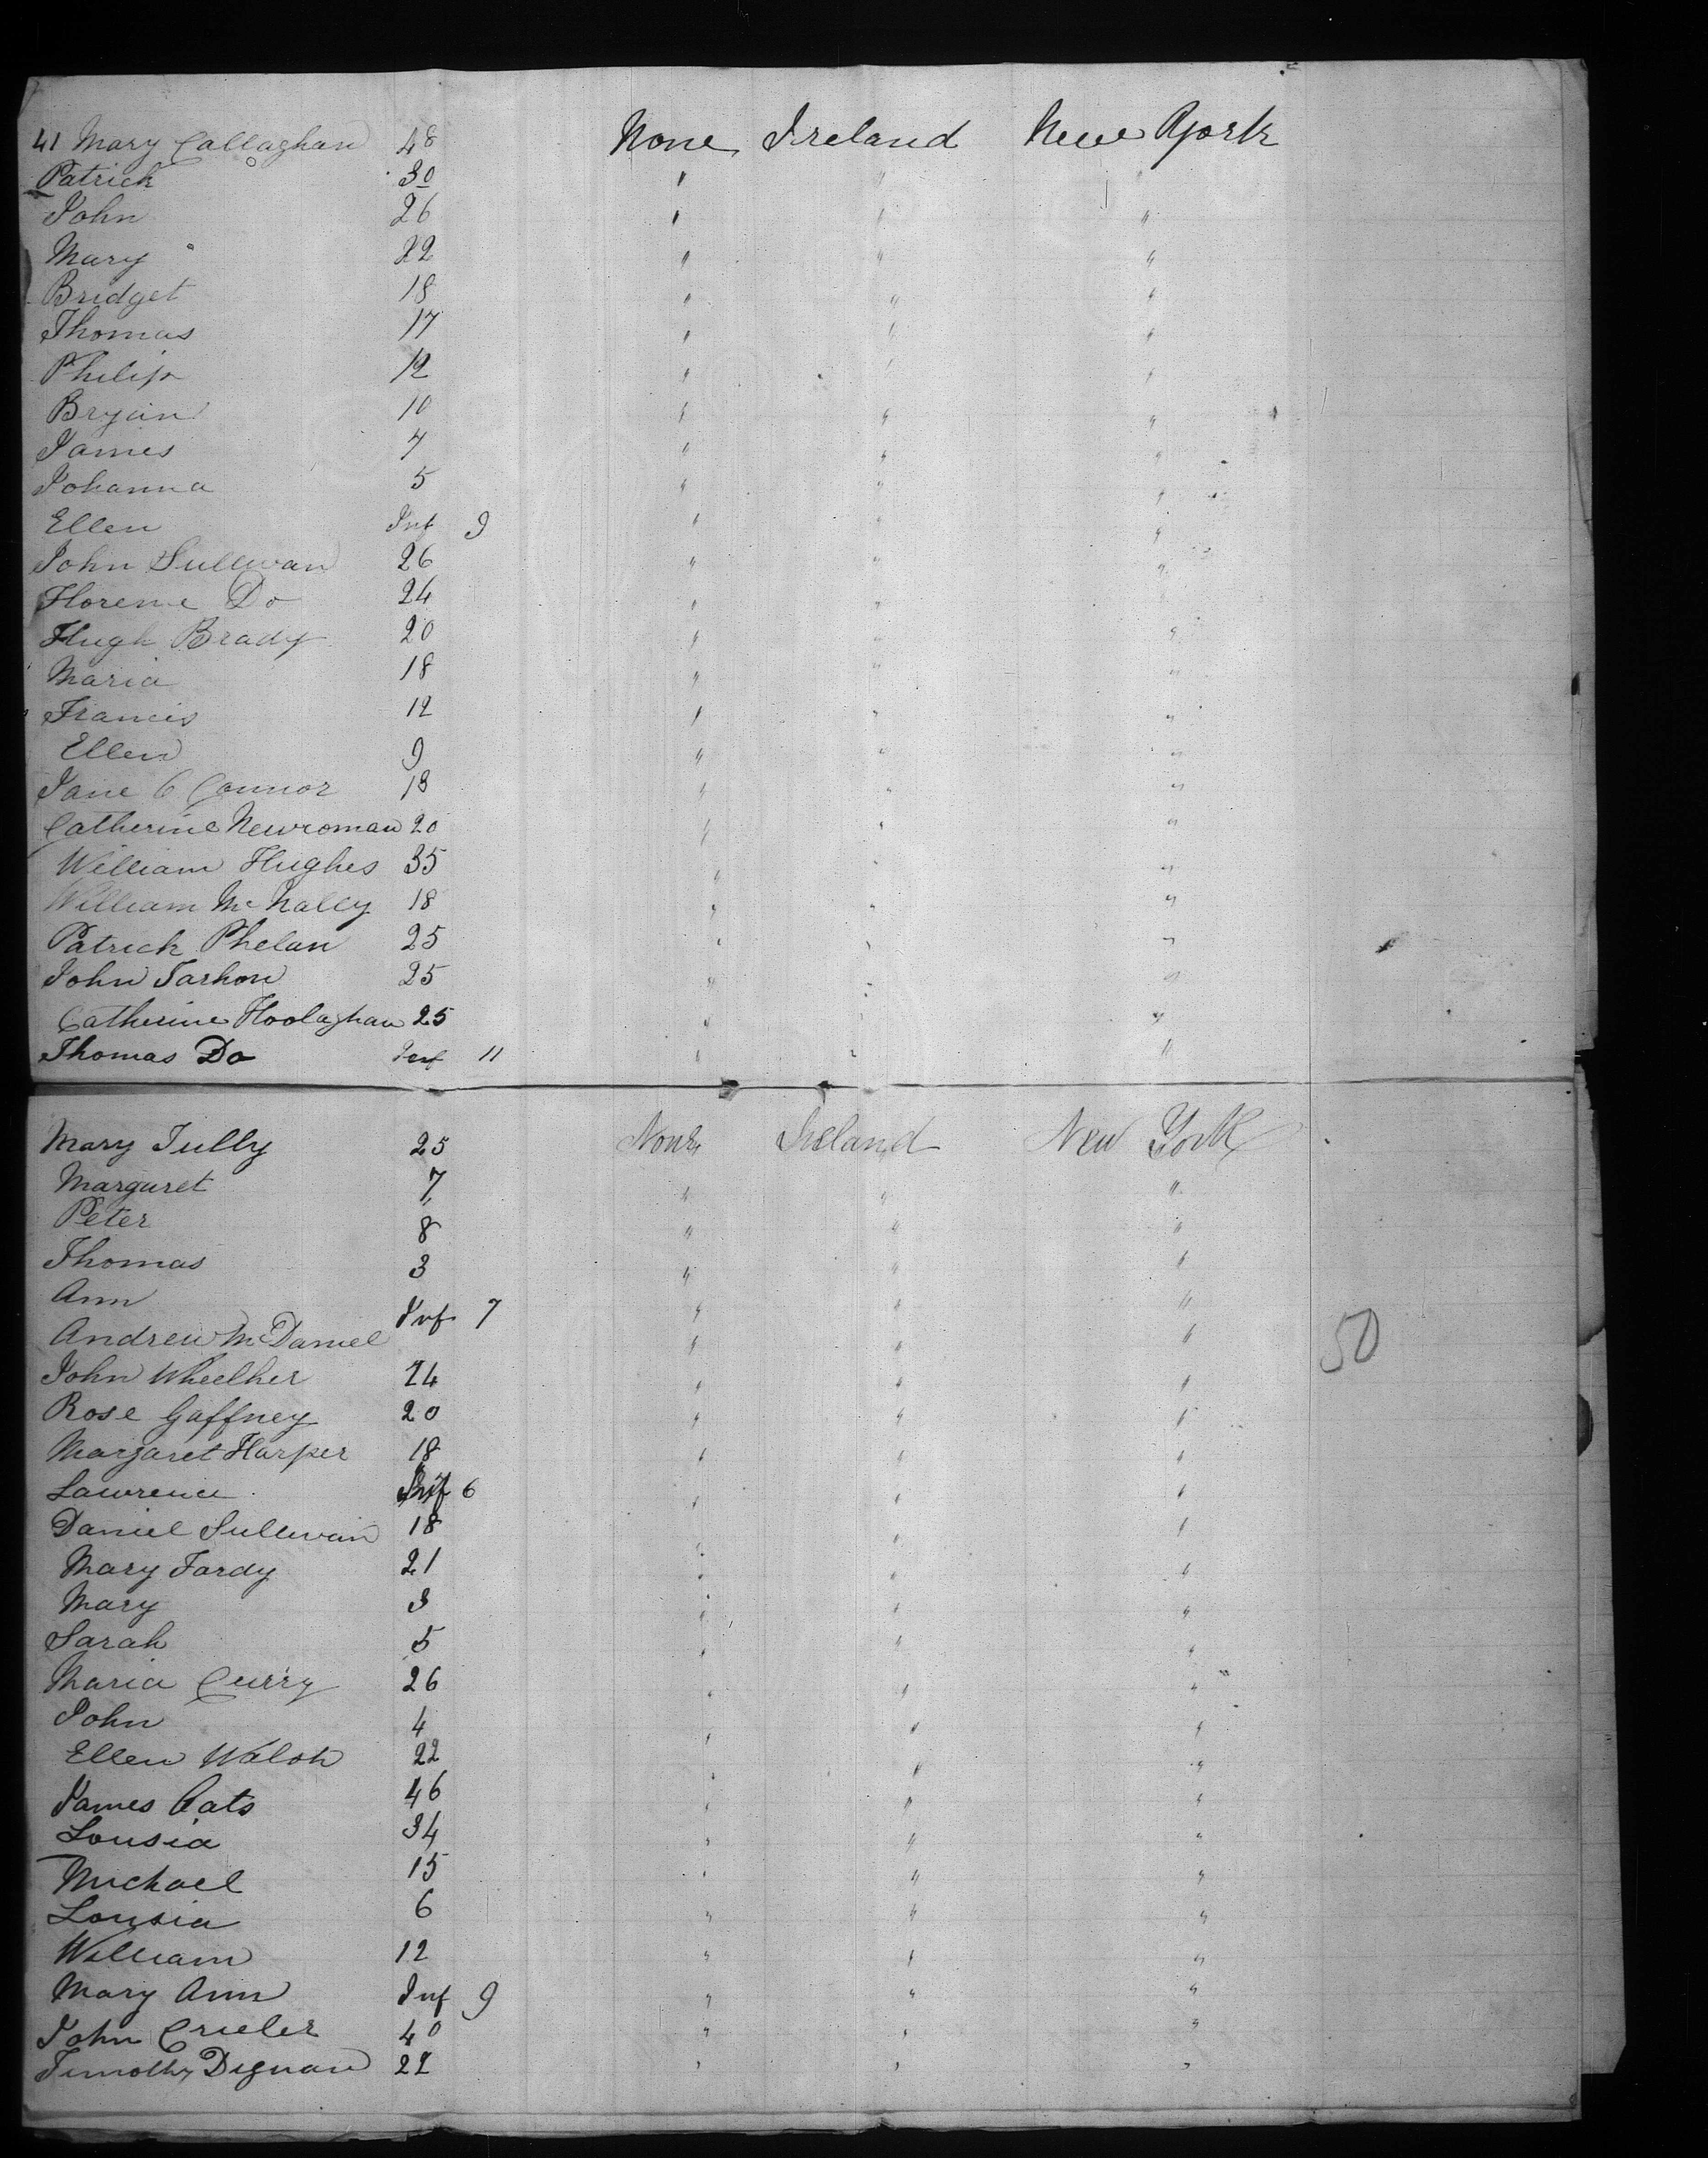 41 Mary Callaghan 48 None Ireland New York
Patrick 30 " " "
John 26 " " "
Mary 22 " " "
Bridget 18 " " "
Thomas 17 " " "
Philip 12 " " "
Bryan 10 " " "
James 7 " " "
Johanna 5 " " "
Ellen Inf 9 " " "
John Sullivan 26 " " "
Florence Do 24 " " "
Hugh Brady 20 " " "
Maria 18 " " "
Francis 12 " " "
Ellen 9 " " "
Jane O Connor 18 " " "
Catherine Newroman 20 " " "
William Hughes 35 " " "
William McNally 18 " " "
Patrick Phelan 25 " " "
John 25 " " "
Catherine Hoolaghan 25 " " "
Thomas Do Inf 11 " " "
Mary Tully 25 None Ireland New York
Margaret 7 " " "
Peter 8 " " "
Thomas 3 " " "
Ann Inf 7 " " "
Andrew McDaniel " " "
50
John Wheelher 24 " " "
Rose Gaffney 20 " " "
Margaret Harper 18 " " "
Lawrence Inf 6 " " "
Daniel Sullivan 18 " " "
Mary Fardy 21 " " "
Mary 3 " " "
Sarah 5 " " "
Maria Curry 26 " " "
John 4 " " "
Ellen Walsh 22 " " "
James Oats 46 " " "
Lousia 34 " " "
Michael 15 " " "
Lousia 6 " " "
William 12 " " "
Mary Ann Inf 9 " " "
John Crieler 40 " " "
Timothy Dignan 22 " " "